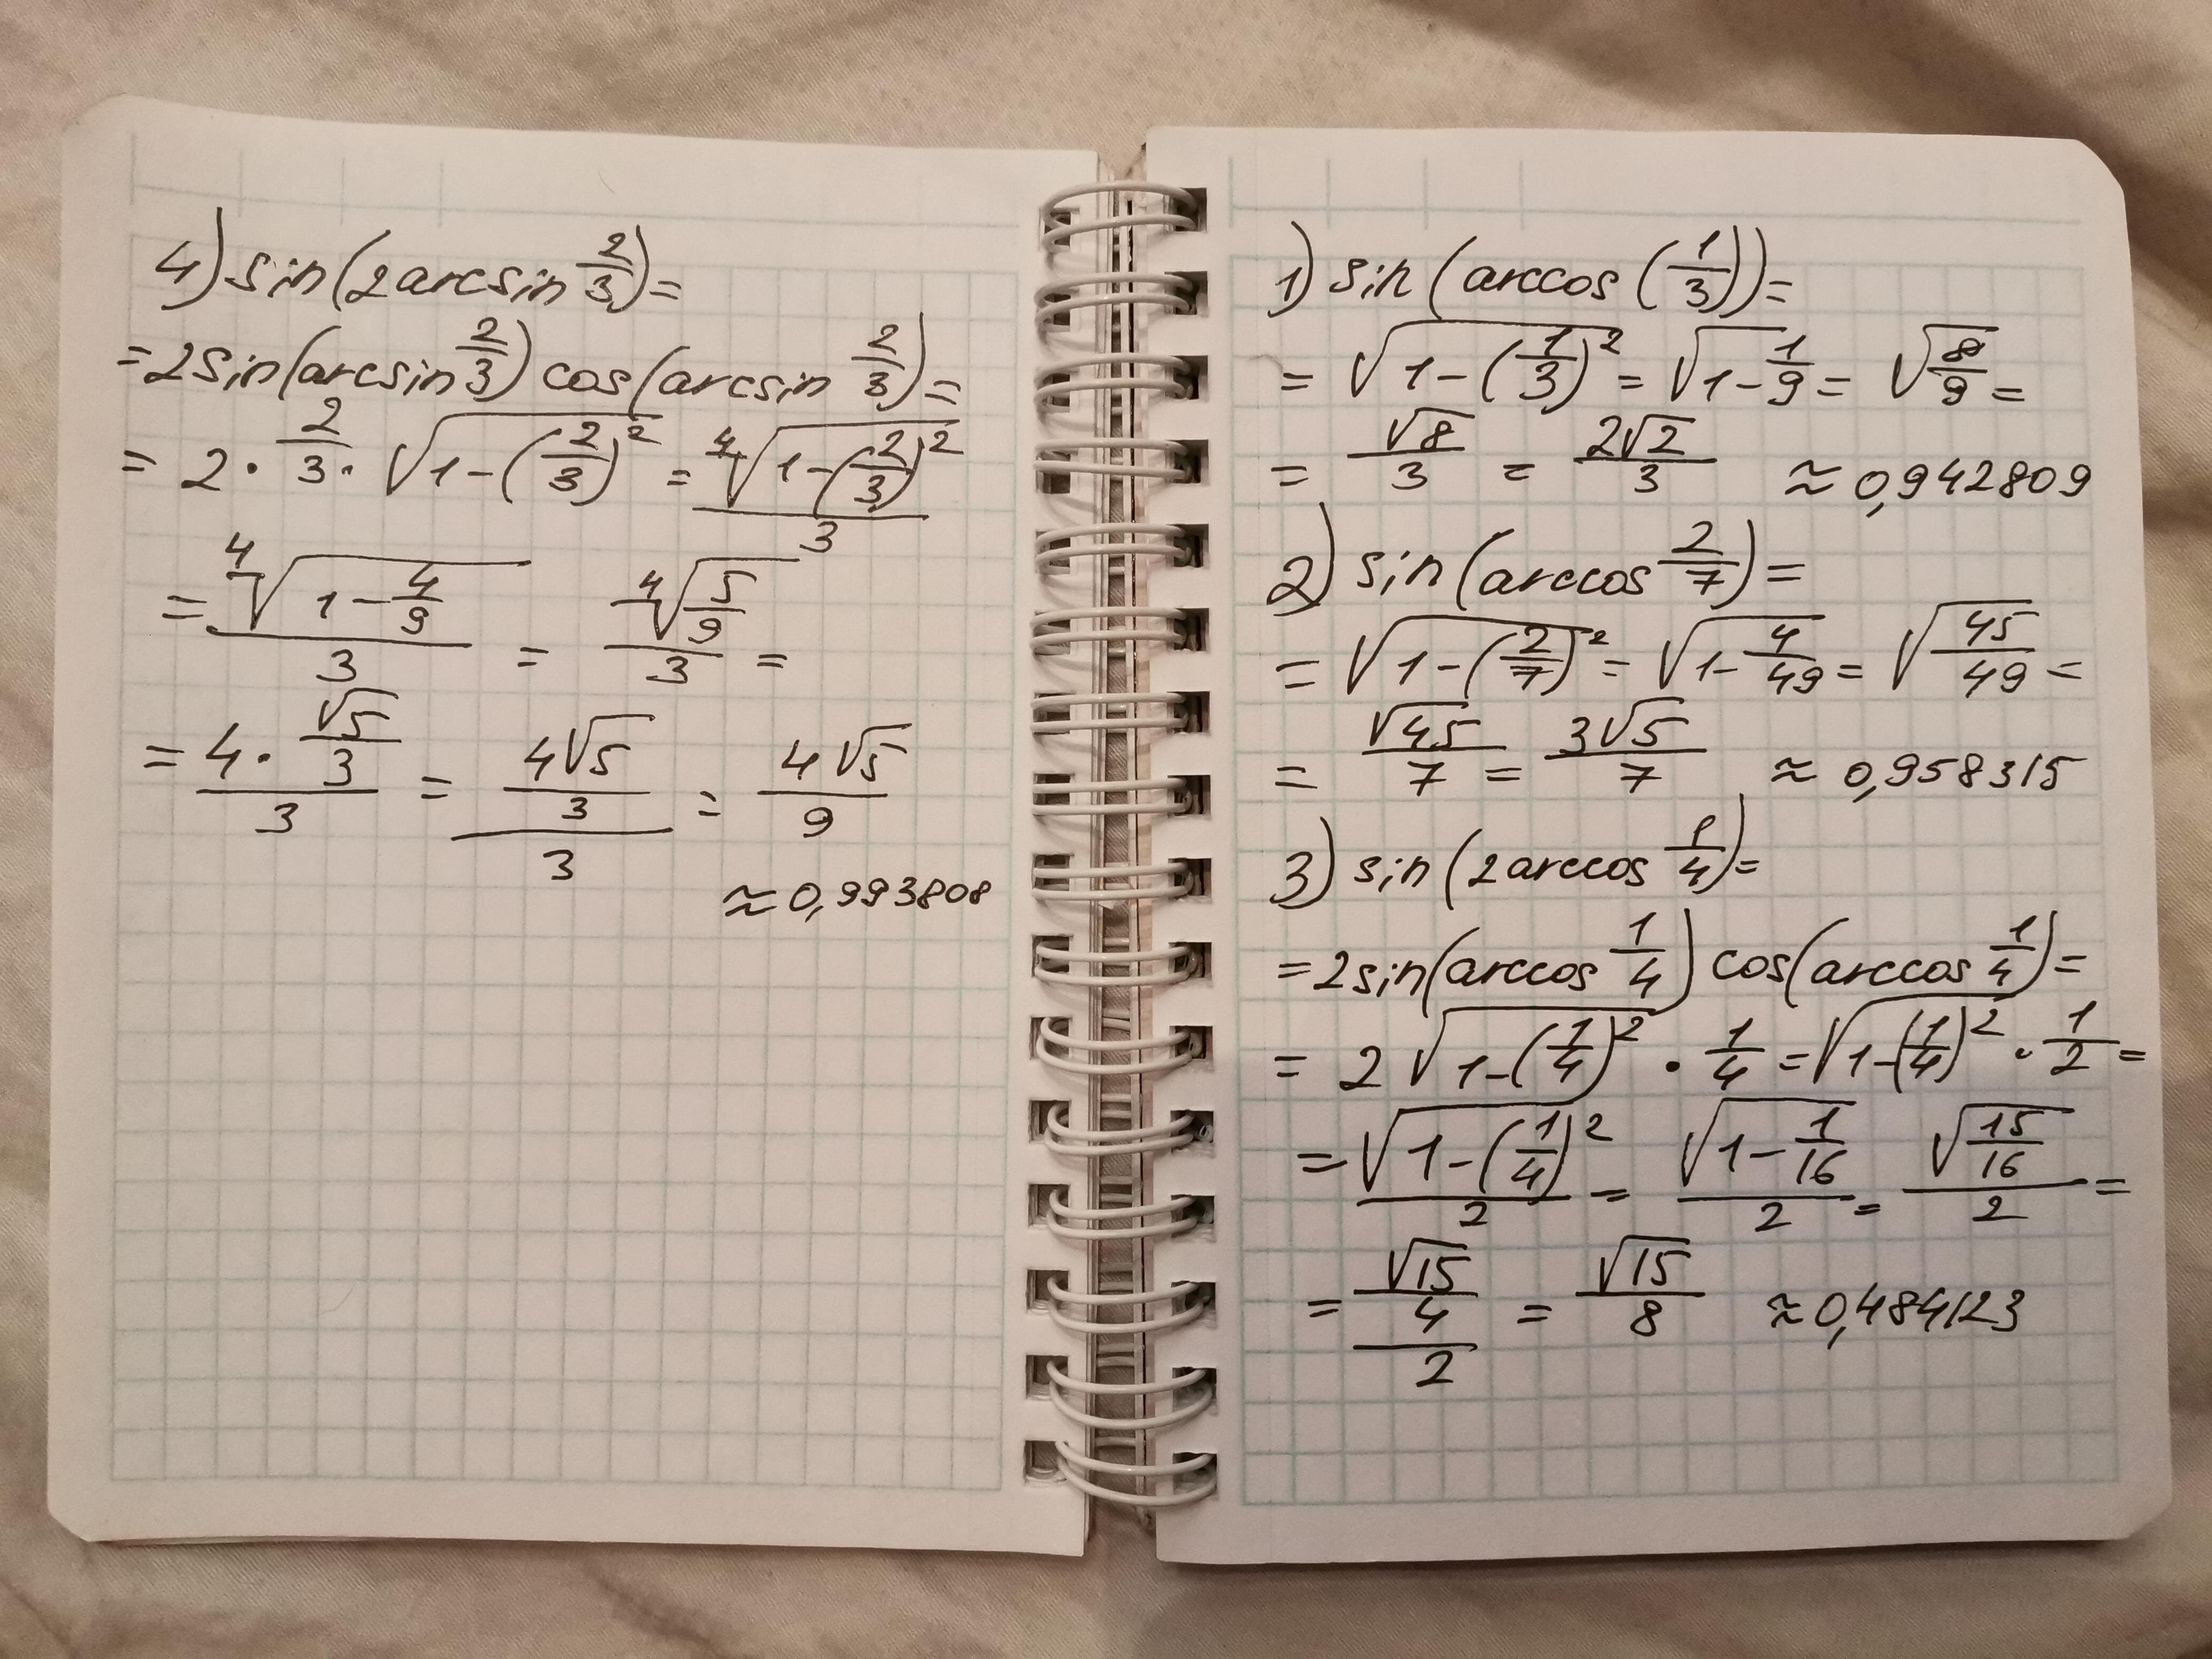 4) sin(2arcsin 2/3) =
= 2sin(arcsin 2/3) cos(arcsin 2/3) =
= 2 · 2/3 · √(1-(2/3)²) = 4√(1-(2/3)²)/3
= 4√(1-4/9)/3 = 4√(5/9)/3 =
= (4 · √5/3)/3 = (4√5/3)/3 = 4√5/9
≈ 0,993808
1) sin(arccos(1/3)) =
= √(1-(1/3)²) = √(1-1/9) = √(8/9) =
= √8/3 = 2√2/3 ≈ 0,942809
2) sin(arccos 2/7) =
= √(1-(2/7)²) = √(1-4/49) = √(45/49) =
= √45/7 = 3√5/7 ≈ 0,958315
3) sin(2arccos 1/4) =
= 2sin(arccos 1/4) cos(arccos 1/4) =
= 2√(1-(1/4)²) · 1/4 = √(1-(1/4)²) · 1/2 =
= √(1-(1/4)²)/2 = √(1-1/16)/2 = √(15/16)/2 =
= (√15/4)/2 = √15/8 ≈ 0,484123